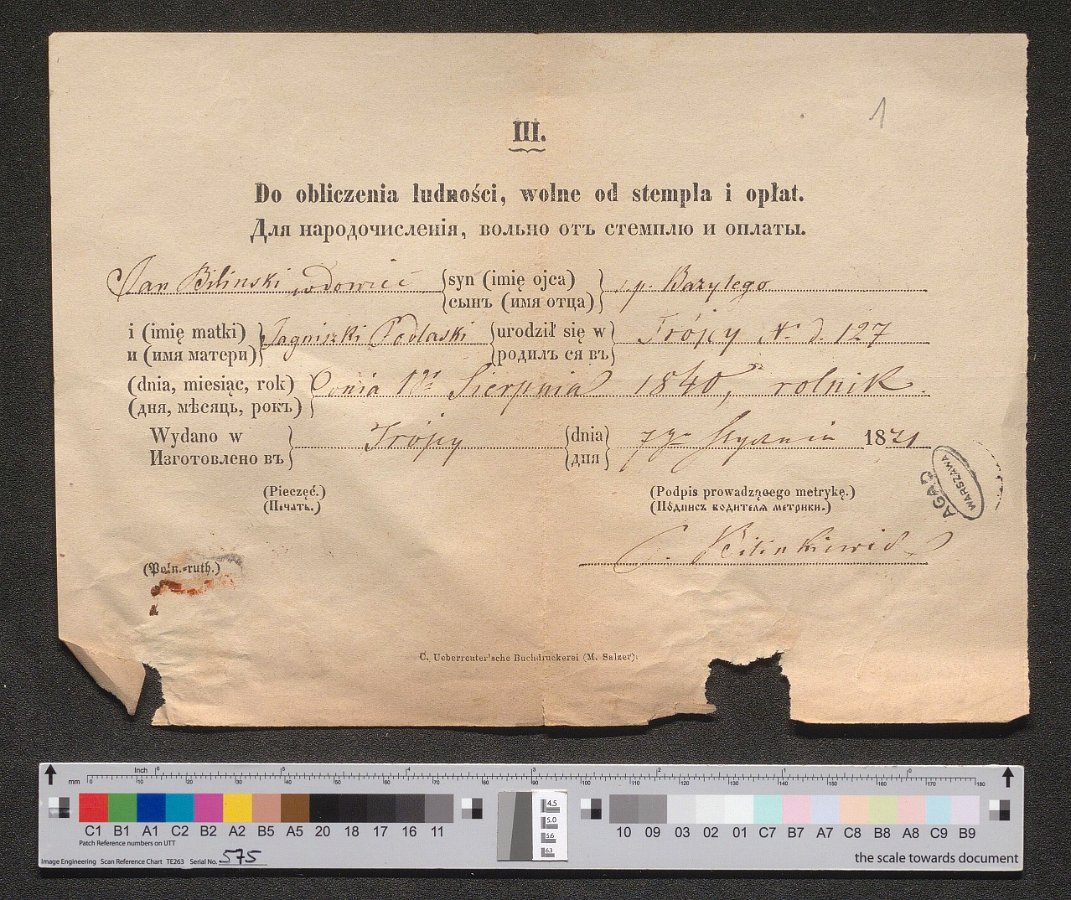 1
III.
Do obliczenia ludności, wolne od stempla i opłat.
Для народочисленія, вольно отъ стемплю и оплаты.
Jan Bilinski wdowiec syn (imię ojca) ś.p. Bazylego
сынъ (имя отца)
i (imię matki) Jagniszki Podlaski urodził się w Trójcy N. d. 127
и (имя матери) родилъ ся въ
(dnia, miesiąc, rok) Sierpnia 1840, rolnik.
(дня, мѣсяць, рокъ)
Wydano w Trójcy dnia Stycznia 1871
Изготовлено въ дня
(Pieczęć.) (Podpis prowadzącego metrykę.)
(Печать.) (Подпись водителя метрики.)
(Poln.-ruth.)
C. Ueberreuter'sche Buchdruckerei (M. Salzer).
AGAD
WARSZAWA
mm Inch
C1 B1 A1 C2 B2 A2 B5 A5 20 18 17 16 11 10 09 03 02 01 C7 B7 A7 C8 B8 A8 C9 B9
Patch Reference numbers on UTT
Image Engineering Scan Reference Chart TE263 Serial No. 575
the scale towards document